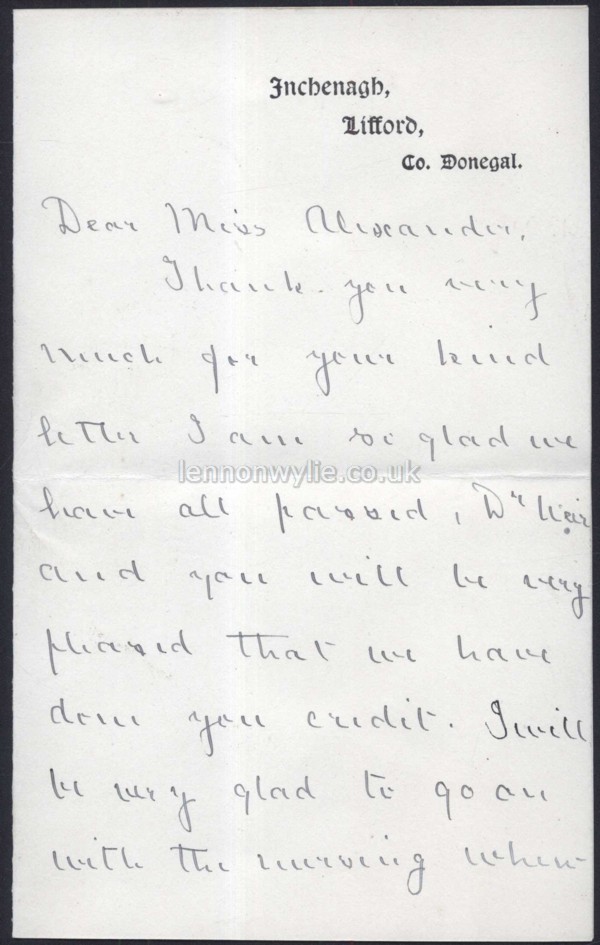 Inchenagh,
Lifford,
Co. Donegal.
Dear Miss Alexander,
Thank you very
much for your kind
letter I am so glad we
lennonwylie.co.uk
have all passed, Dr Weir
and you will be very
pleased that we have
done you credit. I will
be very glad to go on
with the nursing when